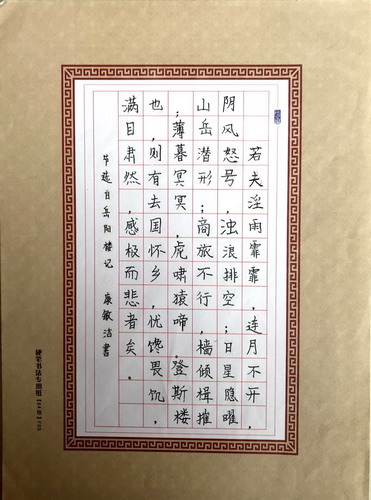 若夫淫雨霏霏，连月不开，
阴风怒号，浊浪排空；日星隐曜
山岳潜形；商旅不行，樯倾楫摧
；薄暮冥冥，虎啸猿啼。登斯楼
也，则有去国怀乡，忧馋畏饥，
满目肃然，感极而悲者矣。
节选自岳阳楼记 康敏洁书